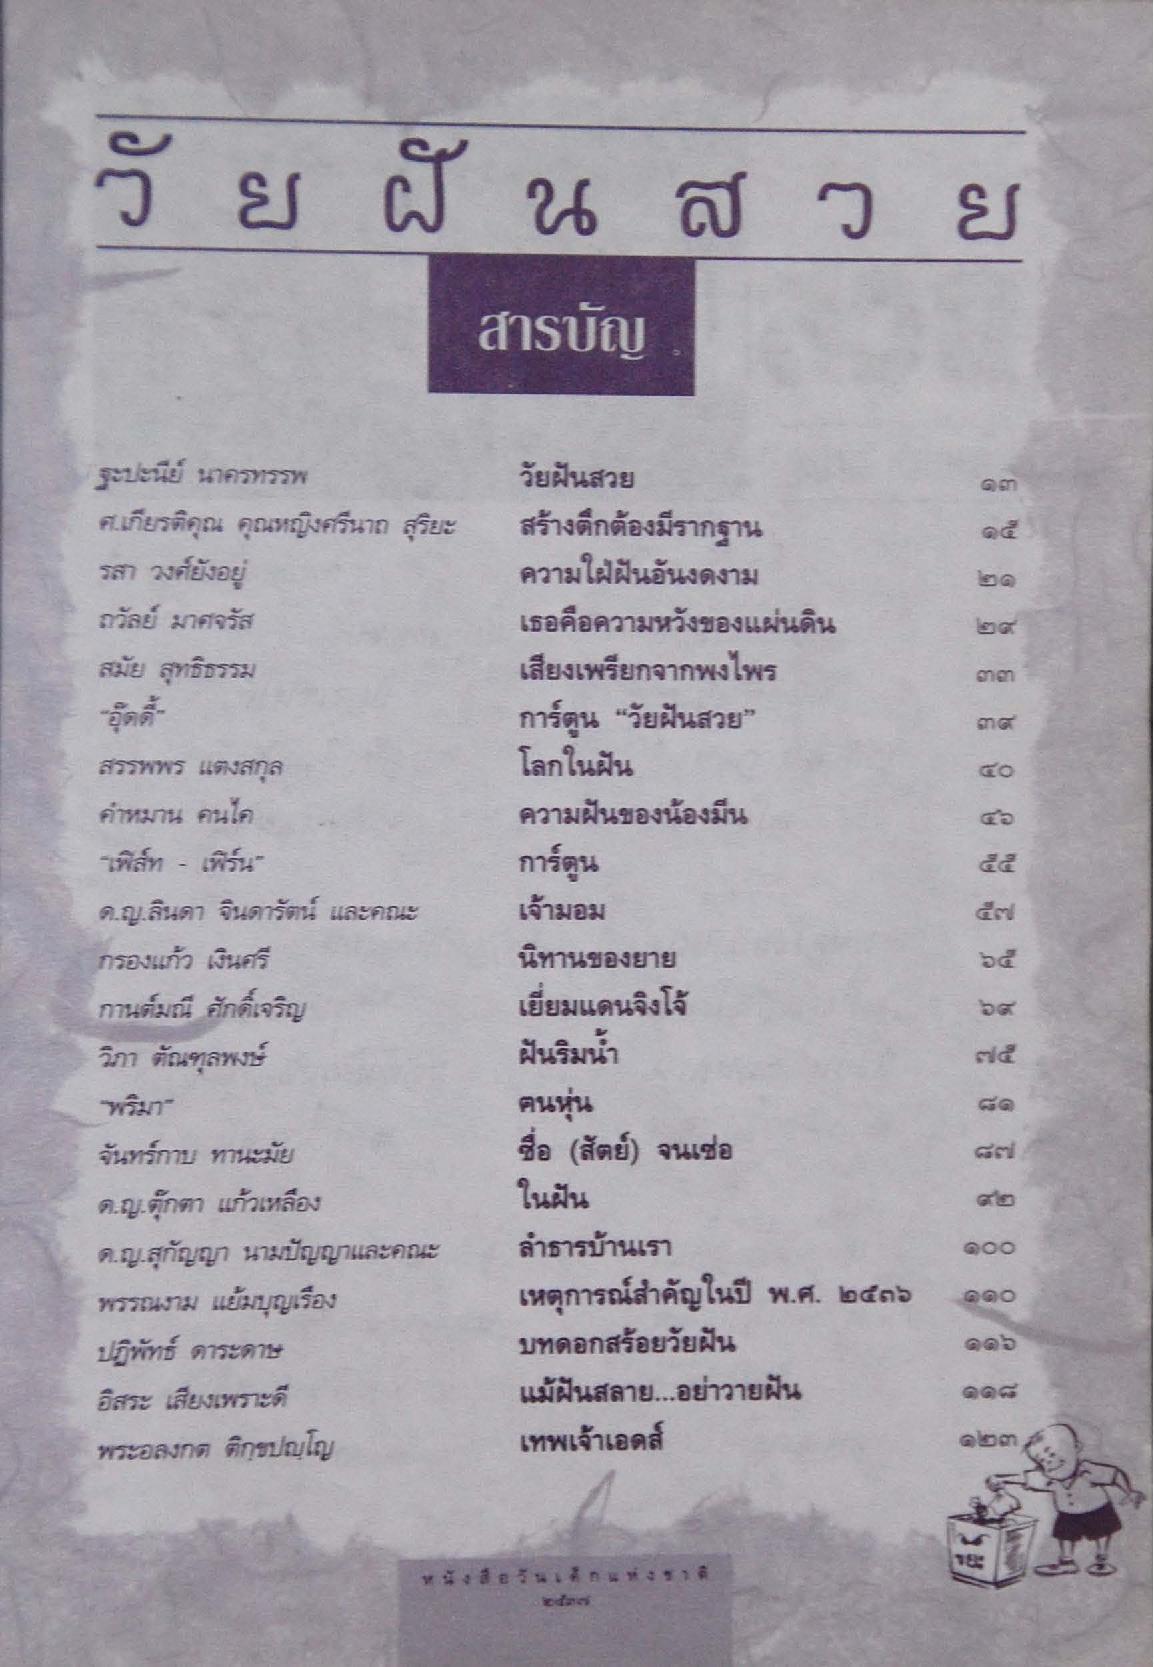 วัยฝันสวย
สารบัญ
ฐะปะนีย์ นาครทรรพ วัยฝันสวย ๑๓
ศ.เกียรติคุณ คุณหญิงศรีนาถ สุริยะ สร้างตึกต้องมีรากฐาน ๑๕
รสา วงศ์ยังอยู่ ความใฝ่ฝันอันงดงาม ๒๑
ถวัลย์ มาศจรัส เธอคือความหวังของแผ่นดิน ๒๙
สมัย สุทธิธรรม เสียงเพรียกจากพงไพร ๓๓
"อุ๊ดดี้" การ์ตูน “วัยฝันสวย” ๓๙
สรรพพร แตงสกุล โลกในฝัน ๔๐
คำหมาน คนไค ความฝันของน้องมีน ๔๖
"เฟิส์ท - เฟิร์น" การ์ตูน ๕๕
ด.ญ.ลินดา จินดารัตน์ และคณะ เจ้ามอม ๕๗
กรองแก้ว เงินศรี นิทานของยาย ๖๕
กานต์มณี ศักดิ์เจริญ เยี่ยมแดนจิงโจ้ ๖๙
วิภา ตัณฑุลพงษ์ ฝันริมน้ำ ๗๕
"พริมา" คนหุ่น ๘๑
จันทร์กาบ ทานะมัย ซื่อ (สัตย์) จนเซ่อ ๘๗
ด.ญ.ตุ๊กตา แก้วเหลือง ในฝัน ๙๒
ด.ญ.สุกัญญา นามปัญญาและคณะ ลำธารบ้านเรา ๑๐๐
พรรณงาม แย้มบุญเรือง เหตุการณ์สำคัญในปี พ.ศ. ๒๕๓๖ ๑๑๐
ปฏิพัทธ์ ดาระดาษ บทดอกสร้อยวัยฝัน ๑๑๖
อิสระ เสียงเพราะดี แม้ฝันสลาย...อย่าวายฝัน ๑๑๘
พระอลงกต ติกฺขปญฺโญ เทพเจ้าเอดส์ ๑๒๓
ขยะ
หนังสือวันเด็กแห่งชาติ
๒๕๓๗